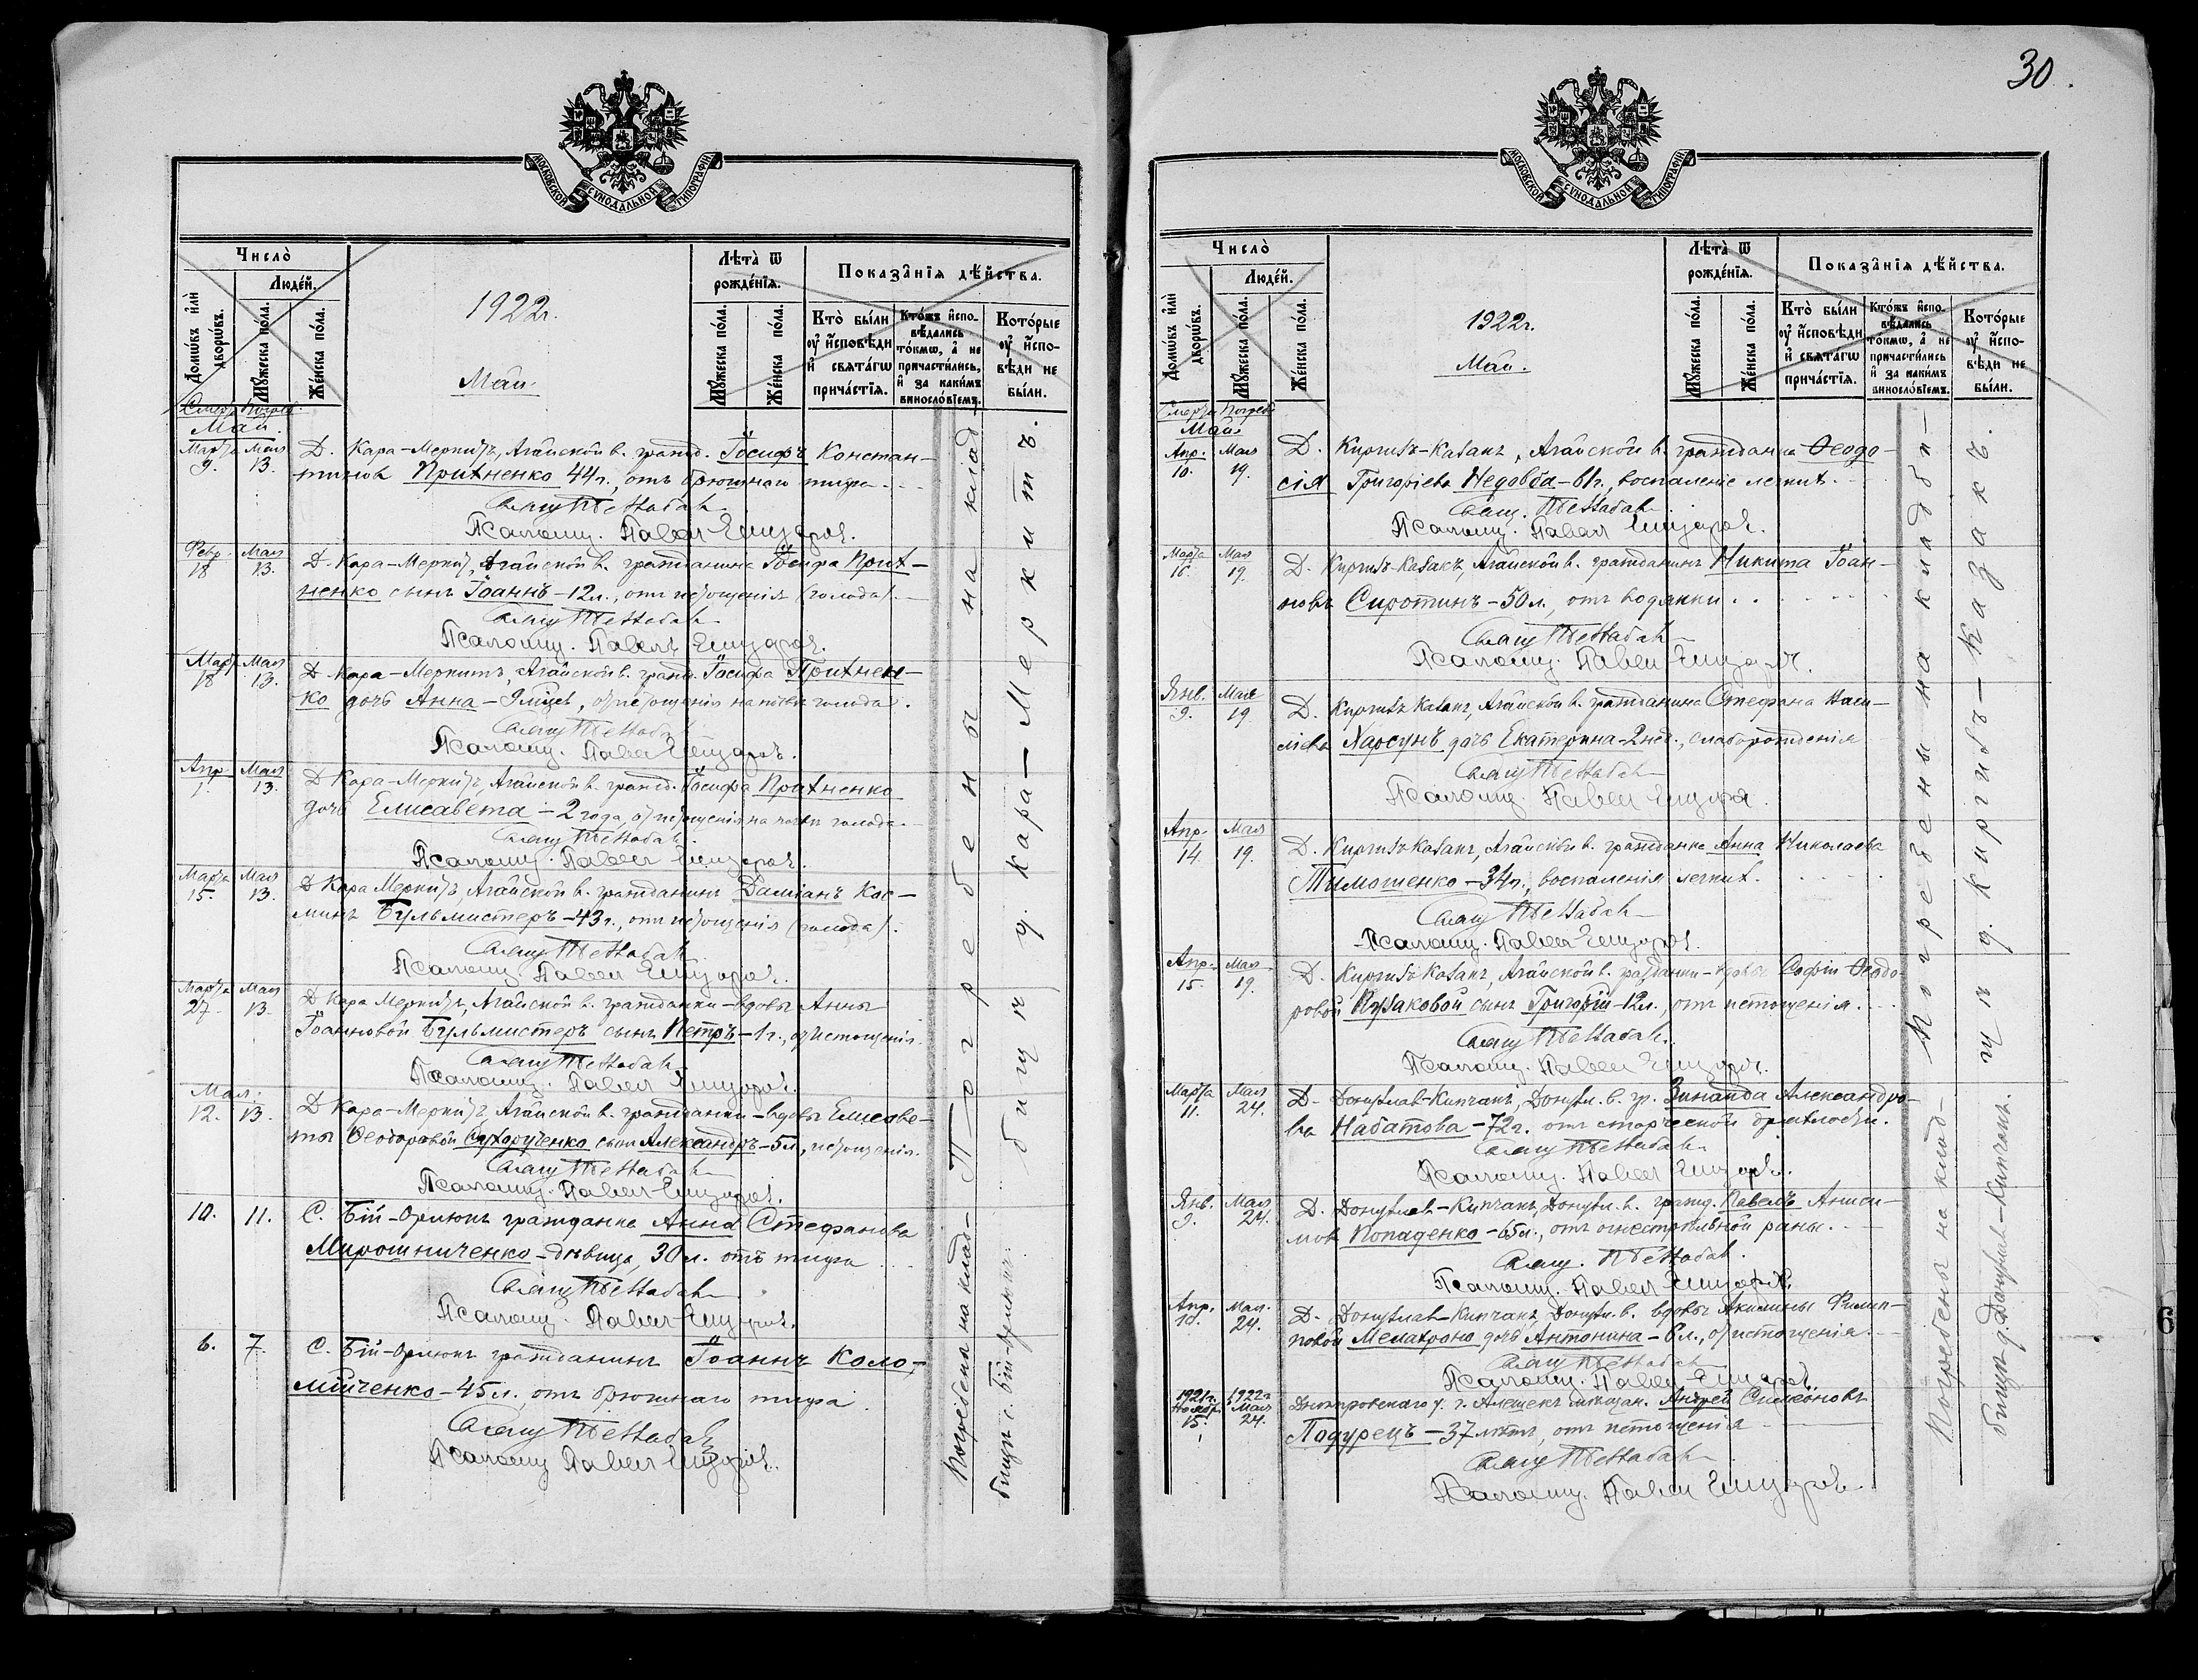 МОСКОВСКОЙ СУНОДАЛЬНОЙ ТИПОГРАФІИ
Число̀
Людéй.
Домѡвъ и҆лѝ дворѡвъ.
Мꙋжеска по́ла.
Же́нска по́ла.
1922г.
Май.
Лѣта̀ ѿ рожде́нїѧ.
Мꙋжеска по́ла.
Же́нска по́ла.
Показа̂нїѧ дѣ́йства.
Кто̀ бы́ли
ᲂу҆ и҆сповѣди
и҆ свѧта́гѡ
прича́стїѧ.
Кто́жъ и҆спо-
вѣдались
то́кмѡ, а҆ не
причасти́лись,
и҆ за каки́мъ
винослóвїемъ.
Кото́рые
ᲂу҆ и҆спо-
вѣди не
бы́ли.
Смерт. Погреб.
Май.
Марта 9. Мая 13. Д. Кара-Меркитъ, Агайской в. гражд. Іосифъ Констан-
тиновъ Прихненко 44г., отъ брюшнаго тифа.
Свящ.
Псаломщ. Павел
Февр. 18 Мая 13. Д. Кара-Меркит, Агайской в. гражданина Іосифа Прих-
ненко сынъ Іоаннъ - 12л., отъ истощенія (голода).
Свящ.
Псаломщ. Павелъ
Март. 18 Мая 13. Д. Кара-Меркитъ, Агайской в. гражд. Іосифа Прихнен-
ко дочь Анна - 9 міцев, от истощенія на почвѣ голода.
Свящ.
Псаломщ. Павел
Апр. 1. Мая 13. Д. Кара-Меркитъ, Агайской в. гражд. Іосифа Прихненко
дочь Елисавета - 2 года, от истощенія на почвѣ голода.
Свящ.
Псаломщ. Павел
Марта 15. Мая 13. Д. Кара Меркитъ, Агайской в. гражданинъ Даміанъ Кос-
минъ Бульмистеръ - 43г., отъ истощенія (голода).
Свящ.
Псаломщ. Павел
Марта 27. Мая 13. Д. Кара Меркитъ, Агайской в. гражданки-вдовы Анны
Іоанновой Бульмистеръ сынъ Петръ - 1г., от истощенія.
Свящ.
Псаломщ. Павел
Мая. 12. 13. Д. Кара-Меркитъ Агайской в. гражданки-вдовы Елисаве-
ты Ѳеодоровой Сухорученко сынъ Александръ - 5л., истощенія.
Свящ.
Псаломщ. Павел
10. 11. С. Бій-Орлюкъ гражданка Анна Стефанова
Мирошниченко - дѣвица, 30л. отъ тифа
Свящ.
Псаломщ. Павел
6. 7. С. Бій-Орлюкъ гражданинъ Іоаннъ Коло-
мійченко - 45л., отъ брюшнаго тифа.
Свящ.
Псаломщ. Павел
Погребены на клад-
бищѣ д. Кара-Меркитъ.
Погребены на клад-
бищѣ с. Бій-Орлюкъ.
30.
МОСКОВСКОЙ СУНОДАЛЬНОЙ ТИПОГРАФІИ
Число̀
Людéй.
Домѡвъ и҆лѝ дворѡвъ.
Мꙋжеска по́ла.
Же́нска по́ла.
1922г.
Май.
Лѣта̀ ѿ рожде́нїѧ.
Мꙋжеска по́ла.
Же́нска по́ла.
Показа̂нїѧ дѣ́йства.
Кто̀ бы́ли
ᲂу҆ и҆сповѣди
и҆ свѧта́гѡ
прича́стїѧ.
Кто́жъ и҆спо-
вѣдались
то́кмѡ, а҆ не
причасти́лись
и҆ за каки́мъ
винослóвїемъ.
Кото́рые
ᲂу҆ и҆спо-
вѣди не
бы́ли.
Смерть Погреб.
Май.
Апр. 10. Мая 19. Д. Киргизъ-Казакъ, Агайской в. гражданка Ѳеодо-
сія Григоріева Недовба - 61г., воспаленіе легких.
Свящ.
Псаломщ. Павел
Марта 16. Мая 19. Д. Киргизъ-Казакъ, Агайской в. гражданинъ Никита Іоан-
новъ Сиротинъ - 50л., отъ водянки.
Свящ.
Псаломщ. Павел
Янв. 9. Мая 19. Д. Киргизъ Казакъ, Агайской в. гражданина Стефана Васи-
ліева Харсунъ дочь Екатерина - 2нед., слаборожденія
Свящ.
Псаломщ. Павел
Апр. 14 Мая 19. Д. Киргизъ Казакъ, Агайской в. гражданка Анна Николаева
Тимошенко - 34г., воспаленія легких.
Свящ.
Псаломщ. Павел
Апр. 15 Мая 19. Д. Киргизъ Казакъ, Агайской в. гражданки-вдовы Софіи Ѳеодо-
ровой сынъ Григорій - 12л., отъ истощенія.
Свящ.
Псаломщ. Павел
Марта 11. Мая 24. Д. Донузлав-Кипчакъ, Донузл. в. гр. Зинаида Александро-
ва Набатова - 72г. отъ старческой дряхлости.
Свящ.
Псаломщ. Павел
Янв. 9. Мая 24. Д. Донузлав-Кипчакъ, Донузл. в. гражд. Павелъ Аниси-
мов Копаденко - 65л., отъ огнестрѣльной раны.
Свящ.
Псаломщ. Павел
Апр. 10. Мая. 24. Д. Донузлав-Кипчакъ, Донузл. в. вдовы Акилины Филип-
повой дочь Антонина - 6л., от истощенія.
Свящ.
Псаломщ. Павел
1921г. Ноябр. 15. 1922г. Мая 24. Днѣпровскаго у. г. Алешекъ Андрей Симеоновъ
Подурецъ - 37 лѣтъ, отъ истощенія
Свящ.
Псаломщ. Павел
Погребены на кладби-
щѣ д. Киргизъ-Казакъ.
Погребены на клад-
бищѣ д. Донузлав-Кипчакъ.
6